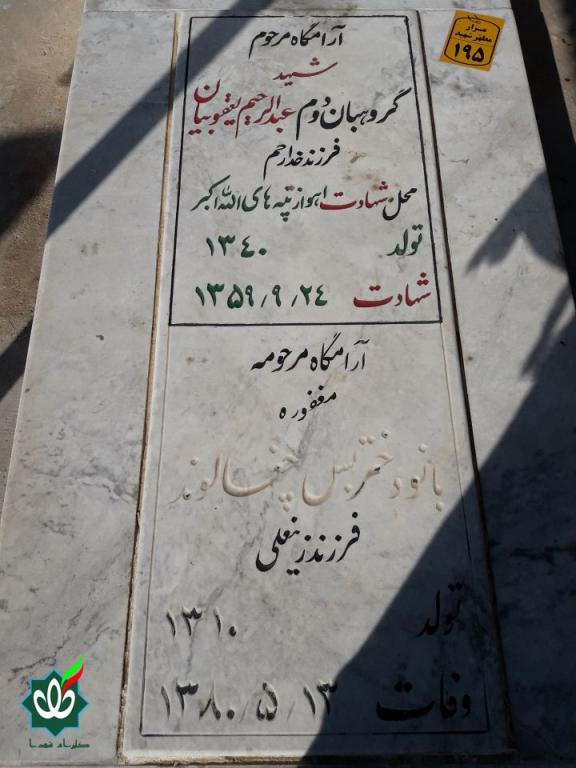 مزار
مطهر شهید
۱۹۵
آرامگاه مرحوم
شهید
گروهبان دوم عبدالرحیم یعقوبیان
فرزند خدارحم
محل شهادت اهواز تپه های الله اکبر
تولد ۱۳۴۰
شهادت ۱۳۵۹/۹/۲۴
آرامگاه مرحومه
مغفوره
بانو دختربس چغالوند
فرزند زینعلی
تولد ۱۳۱۰
وفات ۱۳۸۰/۵/۱۳
گلزار شهدا